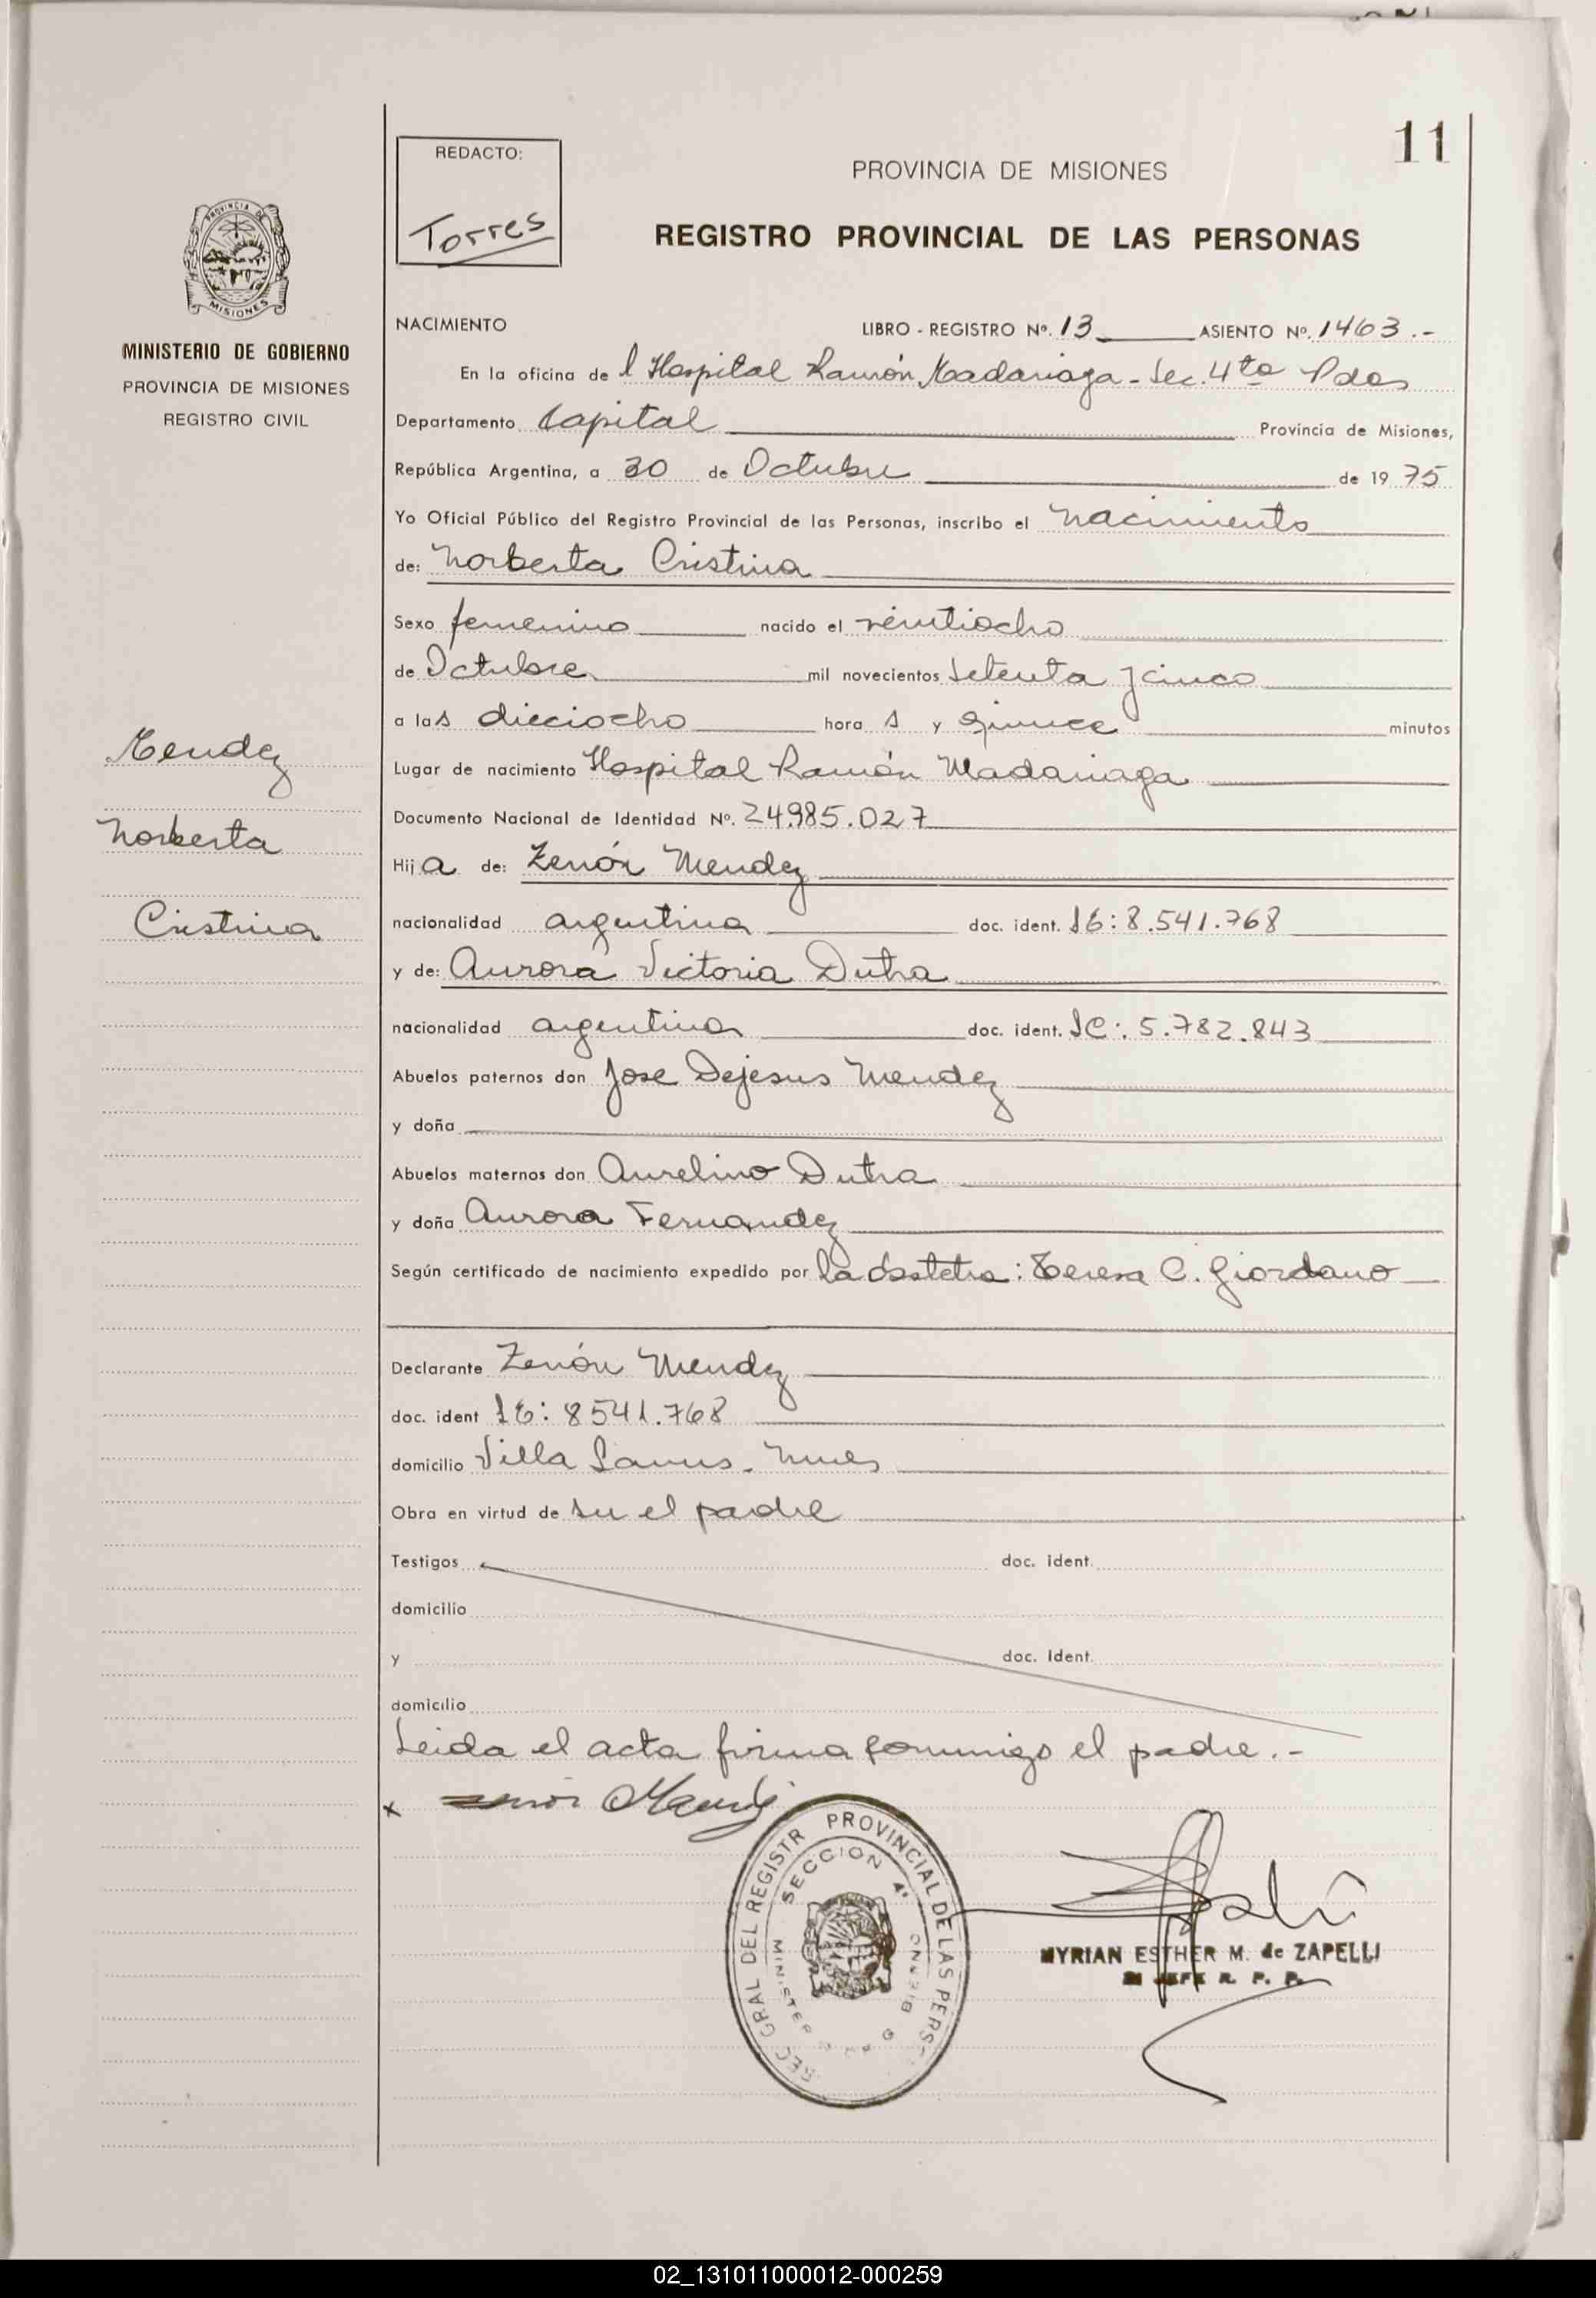 11
REDACTO:
Torres
PROVINCIA DE MISIONES
REGISTRO PROVINCIAL DE LAS PERSONAS
PROVINCIA DE
MISIONES
MINISTERIO DE GOBIERNO
PROVINCIA DE MISIONES
REGISTRO CIVIL
Mendez
Norberta
Cristina
NACIMIENTO LIBRO - REGISTRO Nº. 13 ASIENTO Nº. 1463.-
En la oficina de l Hospital Ramón Madariaga - Sec. 4ta Pdas
Departamento Capital Provincia de Misiones,
República Argentina, a 30 de Octubre de 19 75
Yo Oficial Público del Registro Provincial de las Personas, inscribo el nacimiento
de: Norberta Cristina
Sexo femenino nacido el veintiocho
de Octubre mil novecientos setenta y cinco
a las dieciocho hora s y quince minutos
Lugar de nacimiento Hospital Ramón Madariaga
Documento Nacional de Identidad Nº. 24.985.027
Hij a de: Zenón Mendez
nacionalidad argentina doc. ident. 8.541.768
y de: Aurora Victoria Dutra
nacionalidad argentina doc. ident. 5.782.843
Abuelos paternos don Jose Dejesus Mendez
y doña
Abuelos maternos don Aurelino Dutra
y doña Aurora Fernandez
Según certificado de nacimiento expedido por la obstetra: Teresa C. Giordano
Declarante Zenón Mendez
doc. ident 8541.768
domicilio Villa Lanus - Mnes
Obra en virtud de ser el padre
Testigos doc. ident.
domicilio
y doc. ident.
domicilio
Leida el acta firma conmigo el padre.-
x
REC GRAL DEL REGISTR PROVINCIAL DE LAS PERS
SECCION 4ª
MYRIAN ESTHER M. de ZAPELLI
JEFE R. P. P.
02_131011000012-000259